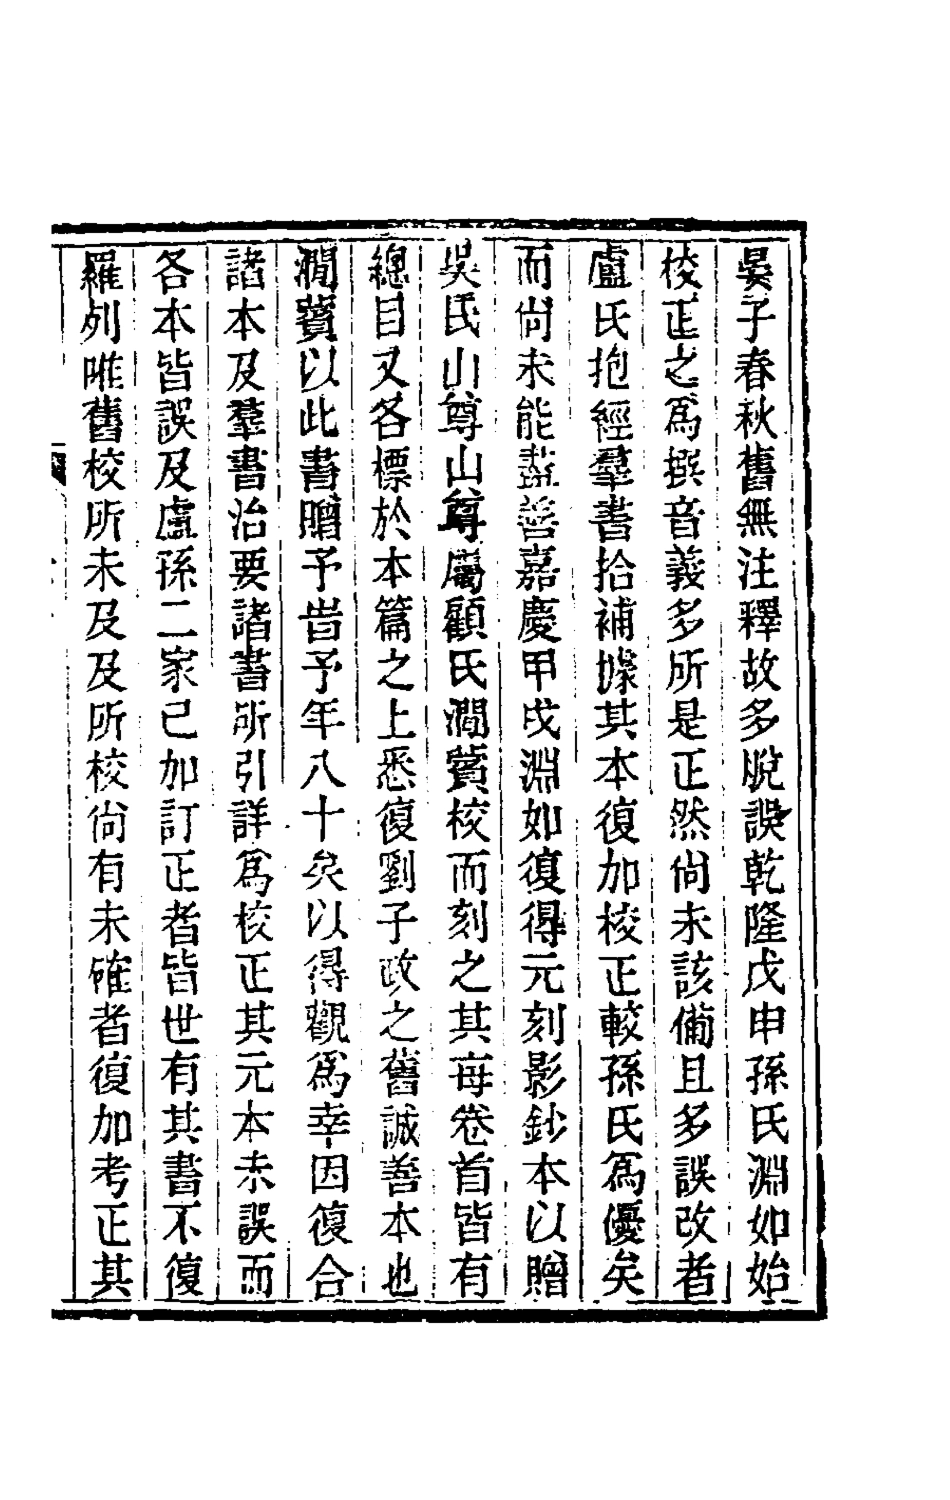 晏子春秋舊無注釋故多脫誤乾隆戊申孫氏淵如始
校正之爲撰音義多所是正然尙未該備且多誤改者
盧氏抱經羣書拾補據其本復加校正較孫氏爲優矣
而尙未能盡善嘉慶甲戌淵如復得元刻影鈔本以贈
吳氏山尊山尊屬顧氏澗薲校而刻之其每卷首皆有
總目又各標於本篇之上悉復劉子政之舊誠善本也
澗薲以此書贈予昔予年八十矣以得觀爲幸因復合
諸本及羣書治要諸書所引詳爲校正其元本未誤而
各本皆誤及盧孫二家已加訂正者皆世有其書不復
羅列唯舊校所未及及所校尙有未確者復加考正其